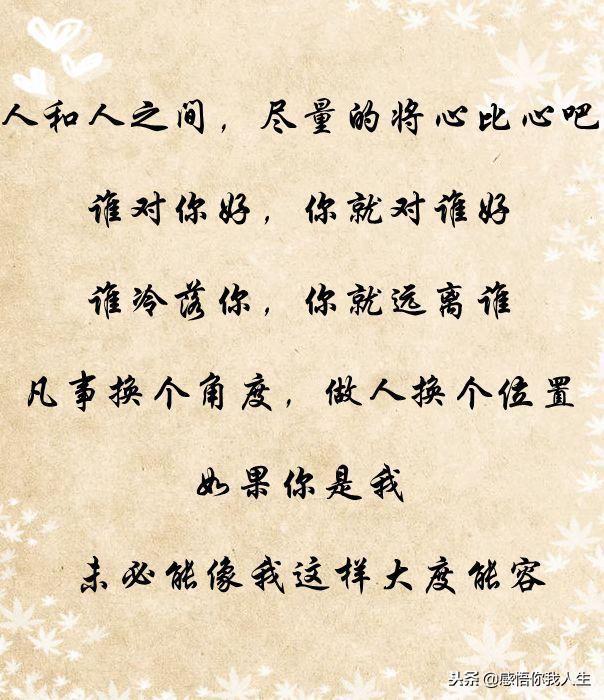 人和人之间，尽量的将心比心吧
谁对你好，你就对谁好
谁冷落你，你就远离谁
凡事换个角度，做人换个位置
如果你是我
未必能像我这样大度能容
头条 @感悟你我人生